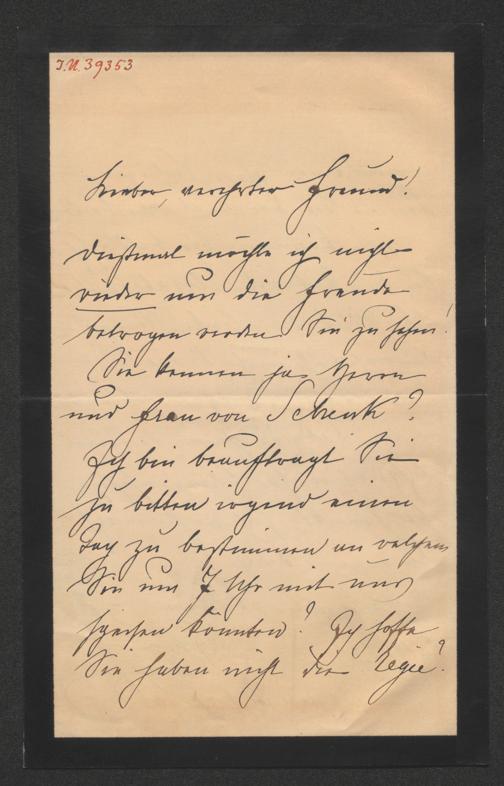 I.N. 39353
Lieber, verehrter Freund!
Dießmal möchte ich nicht
wieder um die Freude
betrogen werden Sie zu sehen!
Sie kennen ja Herrn
und Frau von Schenk?
Ich bin beauftragt Sie
zu bitten irgend einen
Tag zu bestimmen an welchem
Sie um 7 Uhr mit uns
speisen könnten? Ich hoffe
Sie haben nicht die